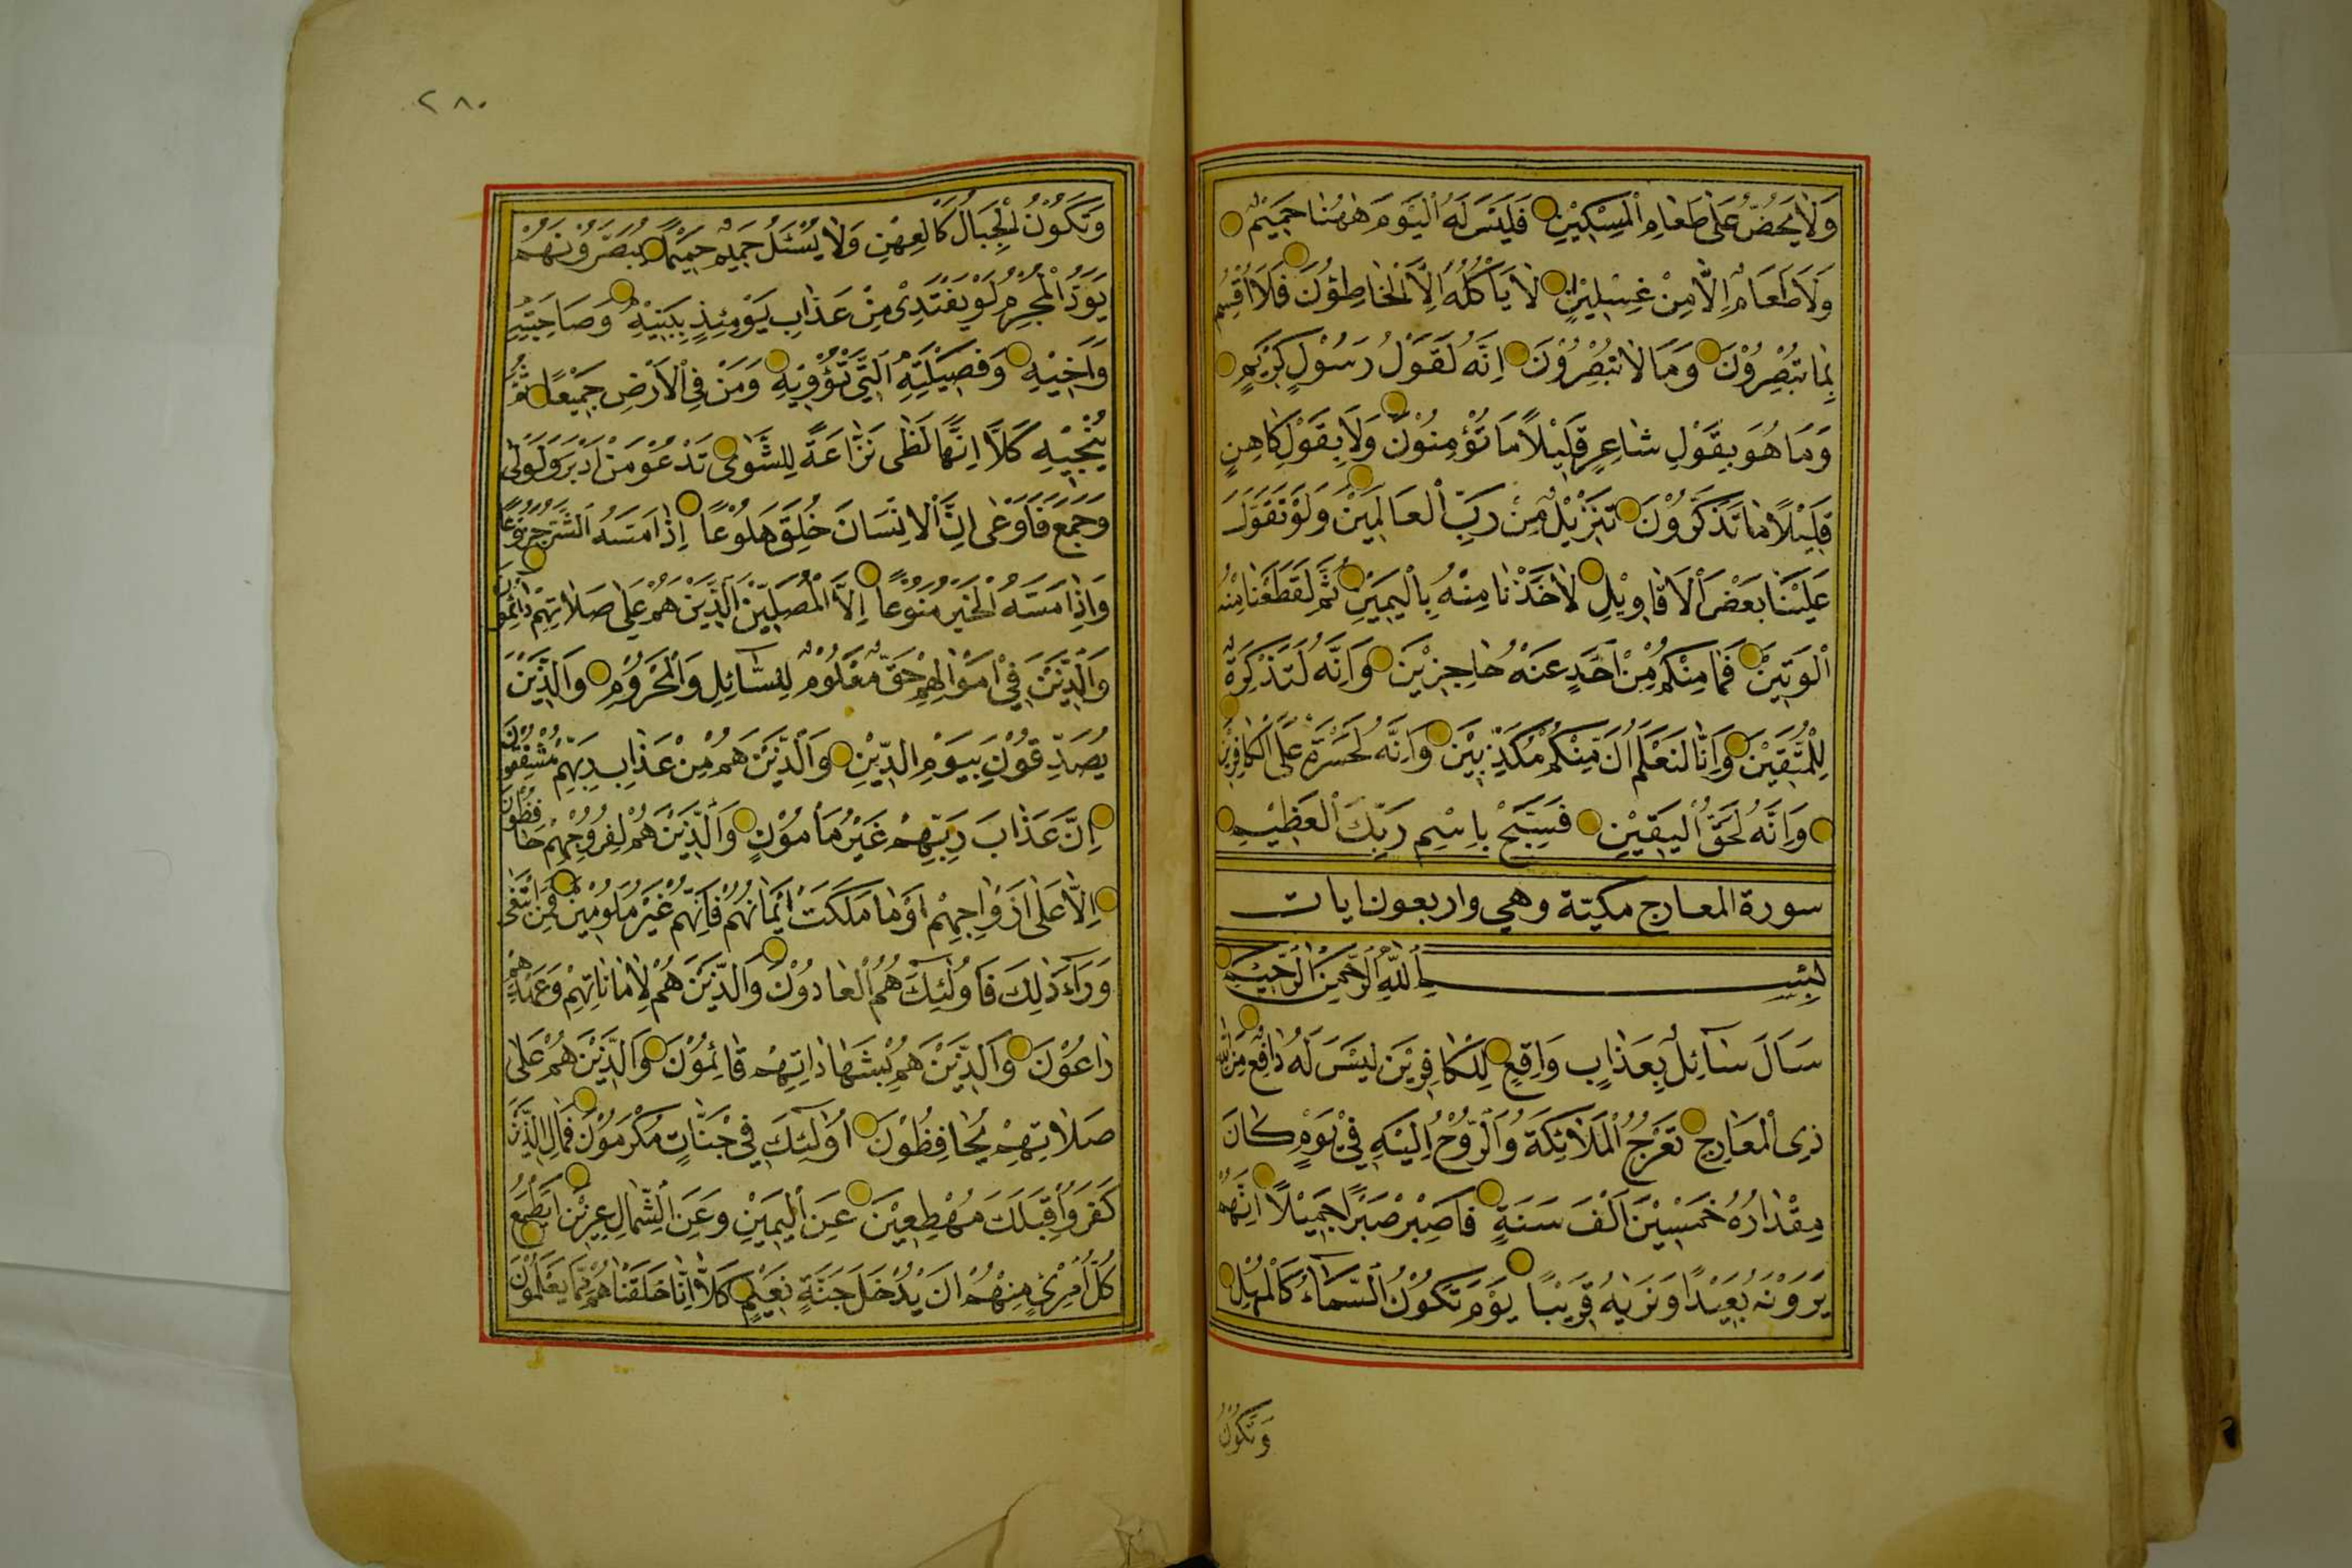 وَلَا يَحُضُّ عَلٰى طَعَامِ الْمِسْكِيْنِ فَلَيْسَ لَهُ الْيَوْمَ هٰهُنَا حَمِيْمٌ
وَلَا طَعَامٌ اِلَّا مِنْ غِسْلِيْنٍ لَا يَأْكُلُهُ اِلَّا الْخَاطِؤُنَ فَلَا اُقْسِمُ
بِمَا تُبْصِرُوْنَ وَمَا لَا تُبْصِرُوْنَ اِنَّهُ لَقَوْلُ رَسُوْلٍ كَرِيْمٍ
وَمَا هُوَ بِقَوْلِ شَاعِرٍ قَلِيْلًا مَا تُؤْمِنُوْنَ وَلَا بِقَوْلِ كَاهِنٍ
قَلِيْلًا مَا تَذَكَّرُوْنَ تَنْزِيْلٌ مِنْ رَبِّ الْعَالَمِيْنَ وَلَوْ تَقَوَّلَ
عَلَيْنَا بَعْضَ الْاَقَاوِيْلِ لَاَخَذْنَا مِنْهُ بِالْيَمِيْنِ ثُمَّ لَقَطَعْنَا مِنْهُ
الْوَتِيْنَ فَمَا مِنْكُمْ مِنْ اَحَدٍ عَنْهُ حَاجِزِيْنَ وَاِنَّهُ لَتَذْكِرَةٌ
لِلْمُتَّقِيْنَ وَاِنَّا لَنَعْلَمُ اَنَّ مِنْكُمْ مُكَذِّبِيْنَ وَاِنَّهُ لَحَسْرَةٌ عَلَى الْكَافِرِيْنَ
وَاِنَّهُ لَحَقُّ الْيَقِيْنِ فَسَبِّحْ بِاسْمِ رَبِّكَ الْعَظِيْمِ
سورة المعارج مكيّة وهي واربعون ايات
بِسْمِ اللّٰهِ الرَّحْمٰنِ الرَّحِيْمِ
سَاَلَ سَآئِلٌ بِعَذَابٍ وَاقِعٍ لِلْكَافِرِيْنَ لَيْسَ لَهُ دَافِعٌ مِنَ اللّٰهِ
ذِى الْمَعَارِجِ تَعْرُجُ الْمَلَائِكَةُ وَالرُّوْحُ اِلَيْهِ فِيْ يَوْمٍ كَانَ
مِقْدَارُهُ خَمْسِيْنَ اَلْفَ سَنَةٍ فَاصْبِرْ صَبْرًا جَمِيْلًا اِنَّهُمْ
يَرَوْنَهُ بَعِيْدًا وَنَرٰيهُ قَرِيْبًا يَوْمَ تَكُوْنُ السَّمَآءُ كَالْمُهْلِ
وَتَكُوْنُ
٢٨٠
وَتَكُوْنُ الْجِبَالُ كَالْعِهْنِ وَلَا يُسْئَلُ حَمِيْمٌ حَمِيْمًا يُبَصَّرُوْنَهُمْ
يَوَدُّ الْمُجْرِمُ لَوْ يَفْتَدِىْ مِنْ عَذَابِ يَوْمِئِذٍ بِبَنِيْهِ وَصَاحِبَتِهِ
وَاَخِيْهِ وَفَصِيْلَتِهِ الَّتِيْ تُؤْوِيْهِ وَمَنْ فِي الْاَرْضِ جَمِيْعًا ثُمَّ
يُنْجِيْهِ كَلَّا اِنَّهَا لَظٰى نَزَّاعَةً لِلشَّوٰى تَدْعُوْ مَنْ اَدْبَرَ وَتَوَلّٰى
وَجَمَعَ فَاَوْعٰى اِنَّ الْاِنْسَانَ خُلِقَ هَلُوْعًا اِذَا مَسَّهُ الشَّرُّ جَزُوْعًا
وَاِذَا مَسَّهُ الْخَيْرُ مَنُوْعًا اِلَّا الْمُصَلِّيْنَ الَّذِيْنَ هُمْ عَلٰى صَلَاتِهِمْ دَائِمُوْنَ
وَالَّذِيْنَ فِيْ اَمْوَالِهِمْ حَقٌّ مَعْلُوْمٌ لِلسَّآئِلِ وَالْمَحْرُوْمِ وَالَّذِيْنَ
يُصَدِّقُوْنَ بِيَوْمِ الدِّيْنِ وَالَّذِيْنَ هُمْ مِنْ عَذَابِ رَبِّهِمْ مُشْفِقُوْنَ
اِنَّ عَذَابَ رَبِّهِمْ غَيْرُ مَأْمُوْنٍ وَالَّذِيْنَ هُمْ لِفُرُوْجِهِمْ حَافِظُوْنَ
اِلَّا عَلٰى اَزْوَاجِهِمْ اَوْ مَا مَلَكَتْ اَيْمَانُهُمْ فَاِنَّهُمْ غَيْرُ مَلُوْمِيْنَ فَمَنِ ابْتَغٰى
وَرَآءَ ذٰلِكَ فَاُولٰئِكَ هُمُ الْعَادُوْنَ وَالَّذِيْنَ هُمْ لِاَمَانَاتِهِمْ وَعَهْدِهِمْ
رَاعُوْنَ وَالَّذِيْنَ هُمْ بِشَهَادَاتِهِمْ قَائِمُوْنَ وَالَّذِيْنَ هُمْ عَلٰى
صَلَاتِهِمْ يُحَافِظُوْنَ اُولٰئِكَ فِيْ جَنَّاتٍ مُكْرَمُوْنَ فَمَالِ الَّذِيْنَ
كَفَرُوْا قِبَلَكَ مُهْطِعِيْنَ عَنِ الْيَمِيْنِ وَعَنِ الشِّمَالِ عِزِيْنَ اَيَطْمَعُ
كُلُّ امْرِئٍ مِنْهُمْ اَنْ يُدْخَلَ جَنَّةَ نَعِيْمٍ كَلَّا اِنَّا خَلَقْنَاهُمْ مِمَّا يَعْلَمُوْنَ